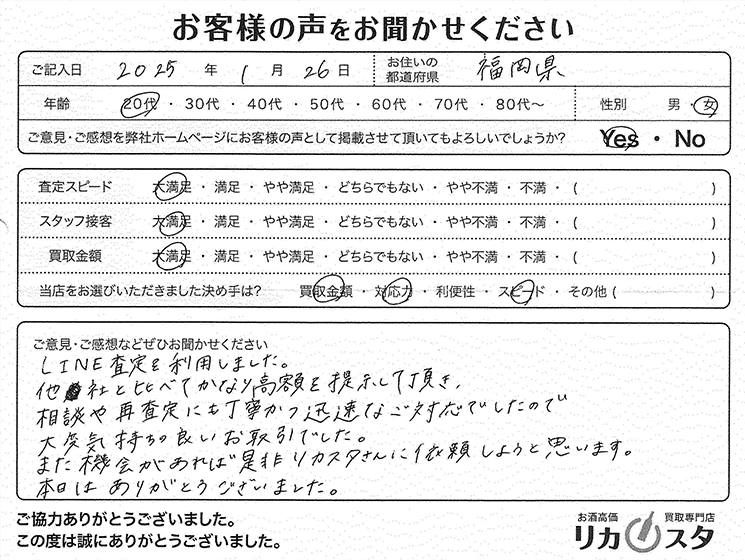 お客様の声をお聞かせください
ご記入日 2025 年 1 月 26 日 お住いの都道府県 福岡県
年齢 20代 ・ 30代 ・ 40代 ・ 50代 ・ 60代 ・ 70代 ・ 80代～ 性別 男 ・ 女
ご意見・ご感想を弊社ホームページにお客様の声として掲載させて頂いてもよろしいでしょうか? Yes ・ No
査定スピード 大満足 ・ 満足 ・ やや満足 ・ どちらでもない ・ やや不満 ・ 不満 ・ ( )
スタッフ接客 大満足 ・ 満足 ・ やや満足 ・ どちらでもない ・ やや不満 ・ 不満 ・ ( )
買取金額 大満足 ・ 満足 ・ やや満足 ・ どちらでもない ・ やや不満 ・ 不満 ・ ( )
当店をお選びいただきました決め手は? 買取金額 ・ 対応力 ・ 利便性 ・ スピード ・ その他 ( )
ご意見・ご感想などぜひお聞かせください
LINE査定を利用しました。
他社と比べてかなり高額を提示して頂き、
相談や再査定にも丁寧かつ迅速なご対応でしたので
大変気持ちの良いお取引でした。
また機会があれば是非リカスタさんに依頼しようと思います。
本日はありがとうございました。
ご協力ありがとうございました。
この度は誠にありがとうございました。
お酒高価 買取専門店
リカスタ